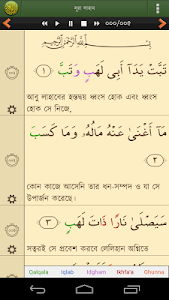 সূরা লাহাব
০০০/০০৫
بِسْمِ اللَّهِ الرَّحْمَٰنِ الرَّحِيمِ
تَبَّتْ يَدَآ أَبِى لَهَبٍ وَتَبَّ ﴿١﴾
আবু লাহাবের হস্তদ্বয় ধ্বংস হোক এবং ধ্বংস
হোক সে নিজে,
مَآ أَغْنَىٰ عَنْهُ مَالُهُۥ وَمَا كَسَبَ
﴿٢﴾
কোন কাজে আসেনি তার ধন-সম্পদ ও যা সে
উপার্জন করেছে।
سَيَصْلَىٰ نَارًا ذَاتَ لَهَبٍ ﴿٣﴾
সত্বরই সে প্রবেশ করবে লেলিহান অগ্নিতে
Qalqala Iqlab Idgham Ikhfa'a Ghunna